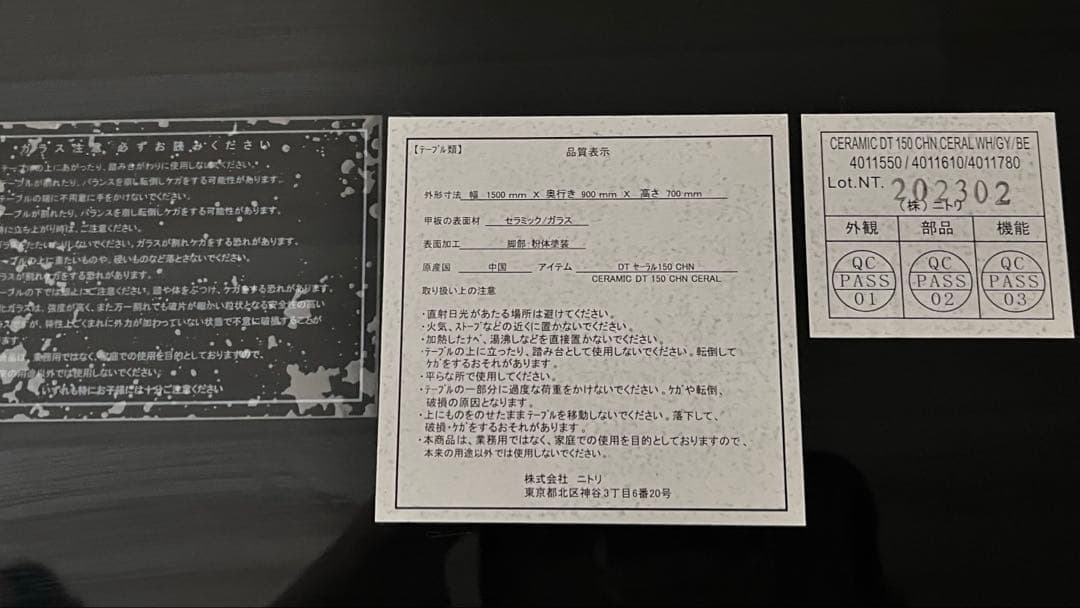 ガラス注意 必ずお読みください
テーブルの上にあがったり、踏み台がわりに使用しないでください。
テーブルが割れたり、バランスを崩し転倒しケガをする可能性があります。
テーブルの端に不用意に手をかけないでください。
テーブルが割れたり、バランスを崩し転倒しケガをする可能性があります。
特に立ち上がり時は、ご注意ください。
たたいたりしないでください。ガラスが割れケガをする恐れがあります。
テーブルの上に重たいものや、硬いものなど落とさないでください。
ガラスが割れケガをする恐れがあります。
テーブルの下では頭上にご注意ください。頭や体をぶつけ、ケガをする恐れがあります。
ガラスは、強度が高く、また万一割れても破片が細かい粒状となる安全性の高い
ガラスですが、特性上ごくまれに外力が加わっていない状態で不意に破損することが
ます。
商品は、業務用ではなく、家庭での使用を目的としておりますので、
本来の用途以外では使用しないでください。
いずれも特にお子様には十分ご注意ください
【テーブル類】
品質表示
外形寸法 幅 1500 mm X 奥行き 900 mm X 高さ 700 mm
甲板の表面材 セラミック/ガラス
表面加工 脚部:粉体塗装
原産国 中国 アイテム DT セーラル150 CHN
CERAMIC DT 150 CHN CERAL
取り扱い上の注意
・直射日光があたる場所は避けてください。
・火気、ストーブなどの近くに置かないでください。
・加熱したナベ、湯沸しなどを直接置かないでください。
・テーブルの上に立ったり、踏み台として使用しないでください。転倒して
ケガをするおそれがあります。
・平らな所で使用してください。
・テーブルの一部分に過度な荷重をかけないでください。ケガや転倒、
破損の原因となります。
・上にものをのせたままテーブルを移動しないでください。落下して、
破損・ケガをするおそれがあります。
・本商品は、業務用ではなく、家庭での使用を目的としておりますので、
本来の用途以外では使用しないでください。
株式会社 ニトリ
東京都北区神谷3丁目6番20号
CERAMIC DT 150 CHN CERAL WH/GY/BE
4011550/4011610/4011780
Lot.NT. 202302
(株)ニトリ
外観 部品 機能
QC QC QC
PASS PASS PASS
01 02 03